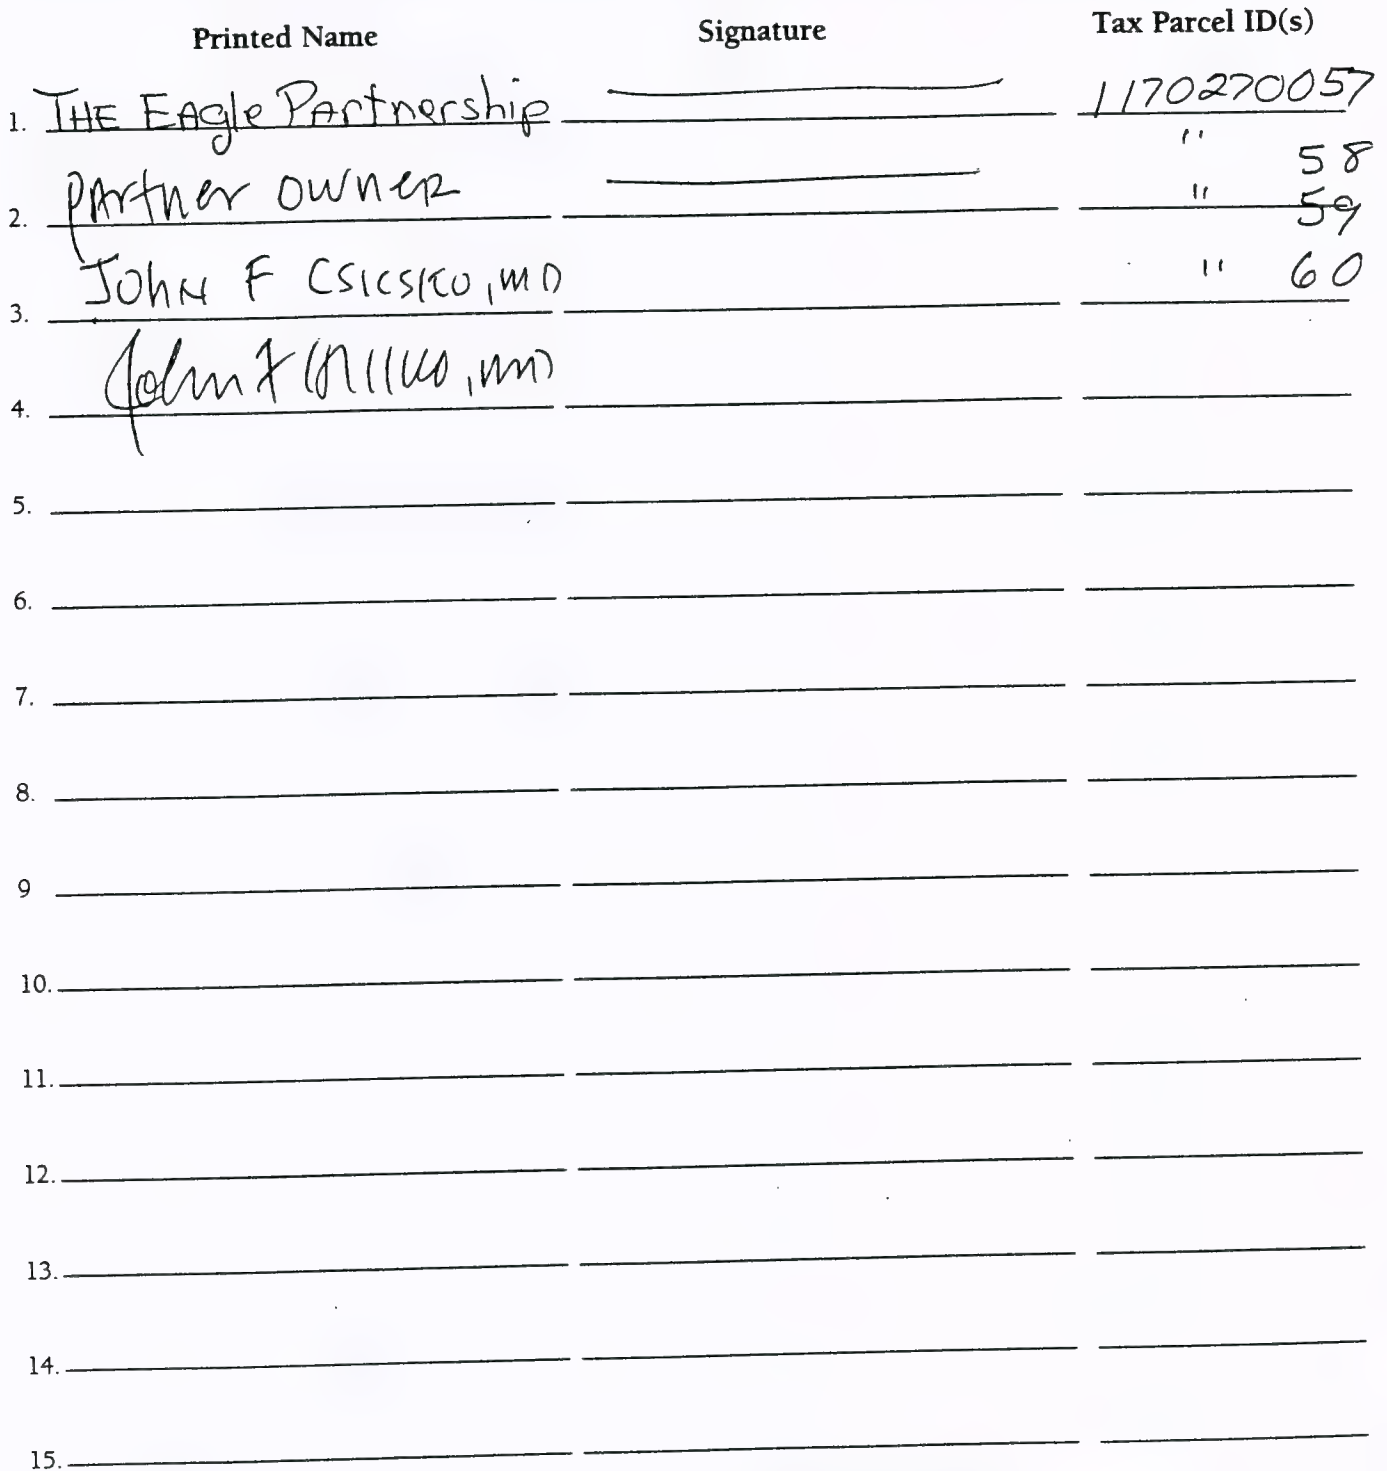 Printed Name Signature Tax Parcel ID(s)
1. THE EAgle PArtnership 1170270057
" 58
2. PArtner OWNER " 59
3. JOHN F CSICSKO, MD " 60
4. John F Csicsko, MD
5.
6.
7.
8.
9
10.
11.
12.
13.
14.
15.